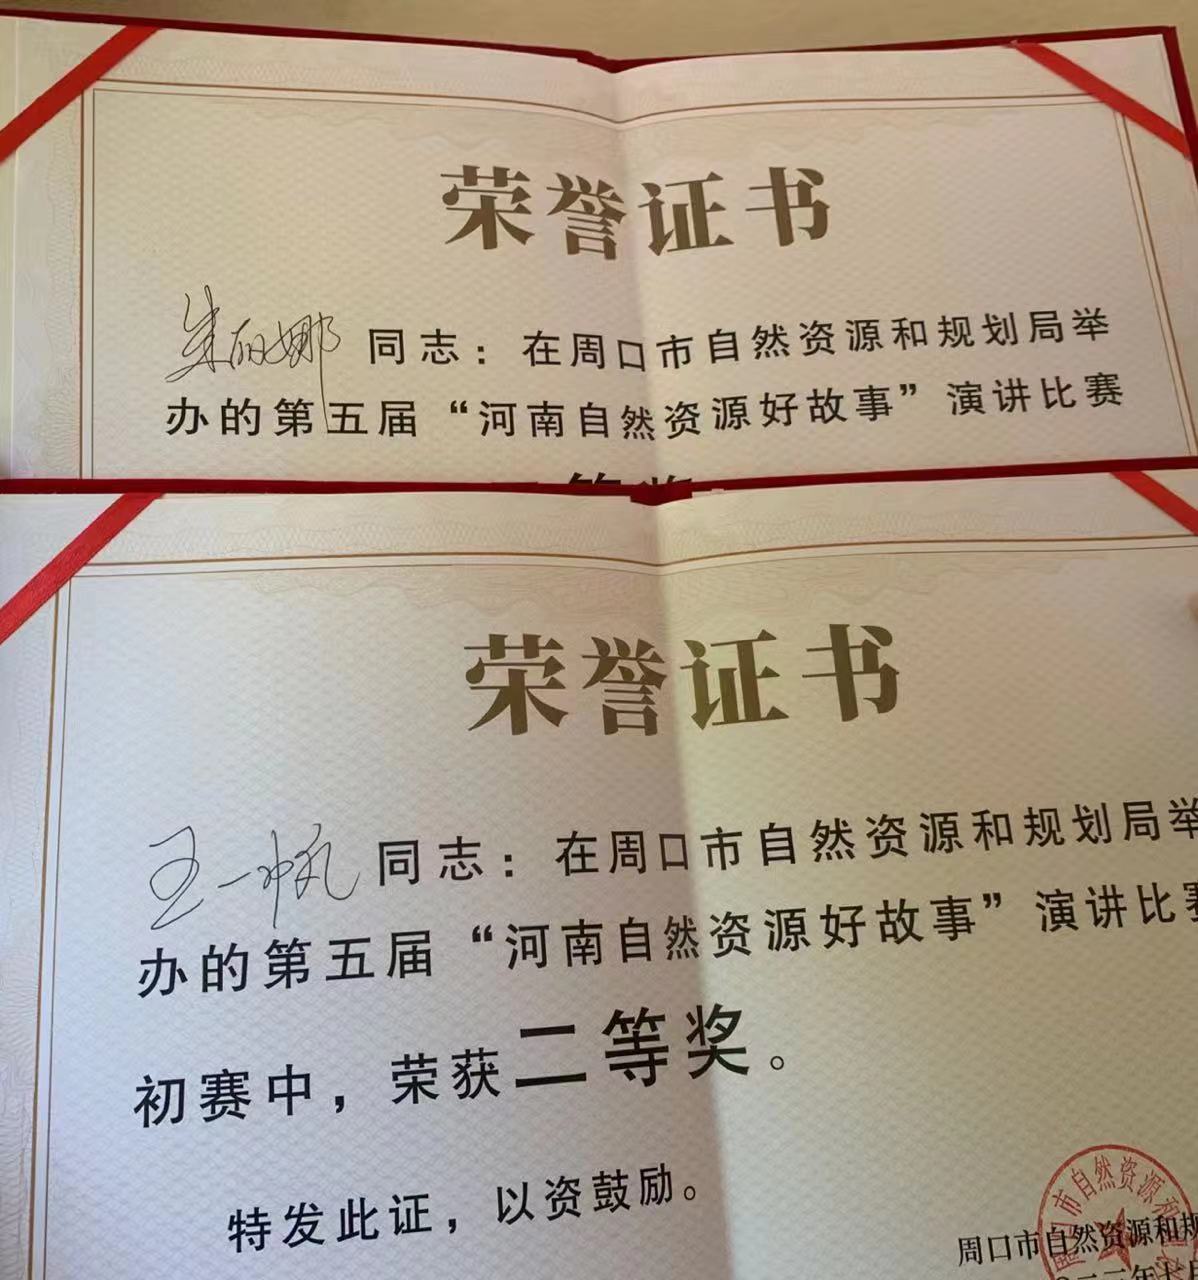 荣誉证书
朱丽娜同志：在周口市自然资源和规划局举
办的第五届“河南自然资源好故事”演讲比赛
等奖
荣誉证书
王一帆同志：在周口市自然资源和规划局举
办的第五届“河南自然资源好故事”演讲比赛
初赛中，荣获二等奖。
特发此证，以资鼓励。
周口市自然资源和规